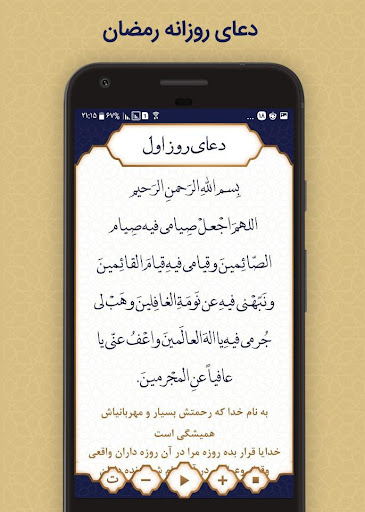 دعای روزانه رمضان
۲۱:۱۵ ۶۷% ۱۸ ...
دعای روز اول
بِسمِ اللهِ الرَحمنِ الرَحیمِ
اللهمَ اجْعلْ صِیامی فیه صِیام
الصّائِمینَ وقیامی فیهِ قیامَ القائِمینَ
ونَبّهْنی فیهِ عن نَومَةِ الغافِلینَ وهَبْ لی
جُرمی فیهِ یا الهَ العالَمینَ واعْفُ عنّی یا
عافیاً عنِ المجْرمینَ.
به نام خدا که رحمتش بسیار و مهربانیاش
همیشگی است
خدایا قرار بده روزه مرا در آن روزه داران واقعی
ت − +